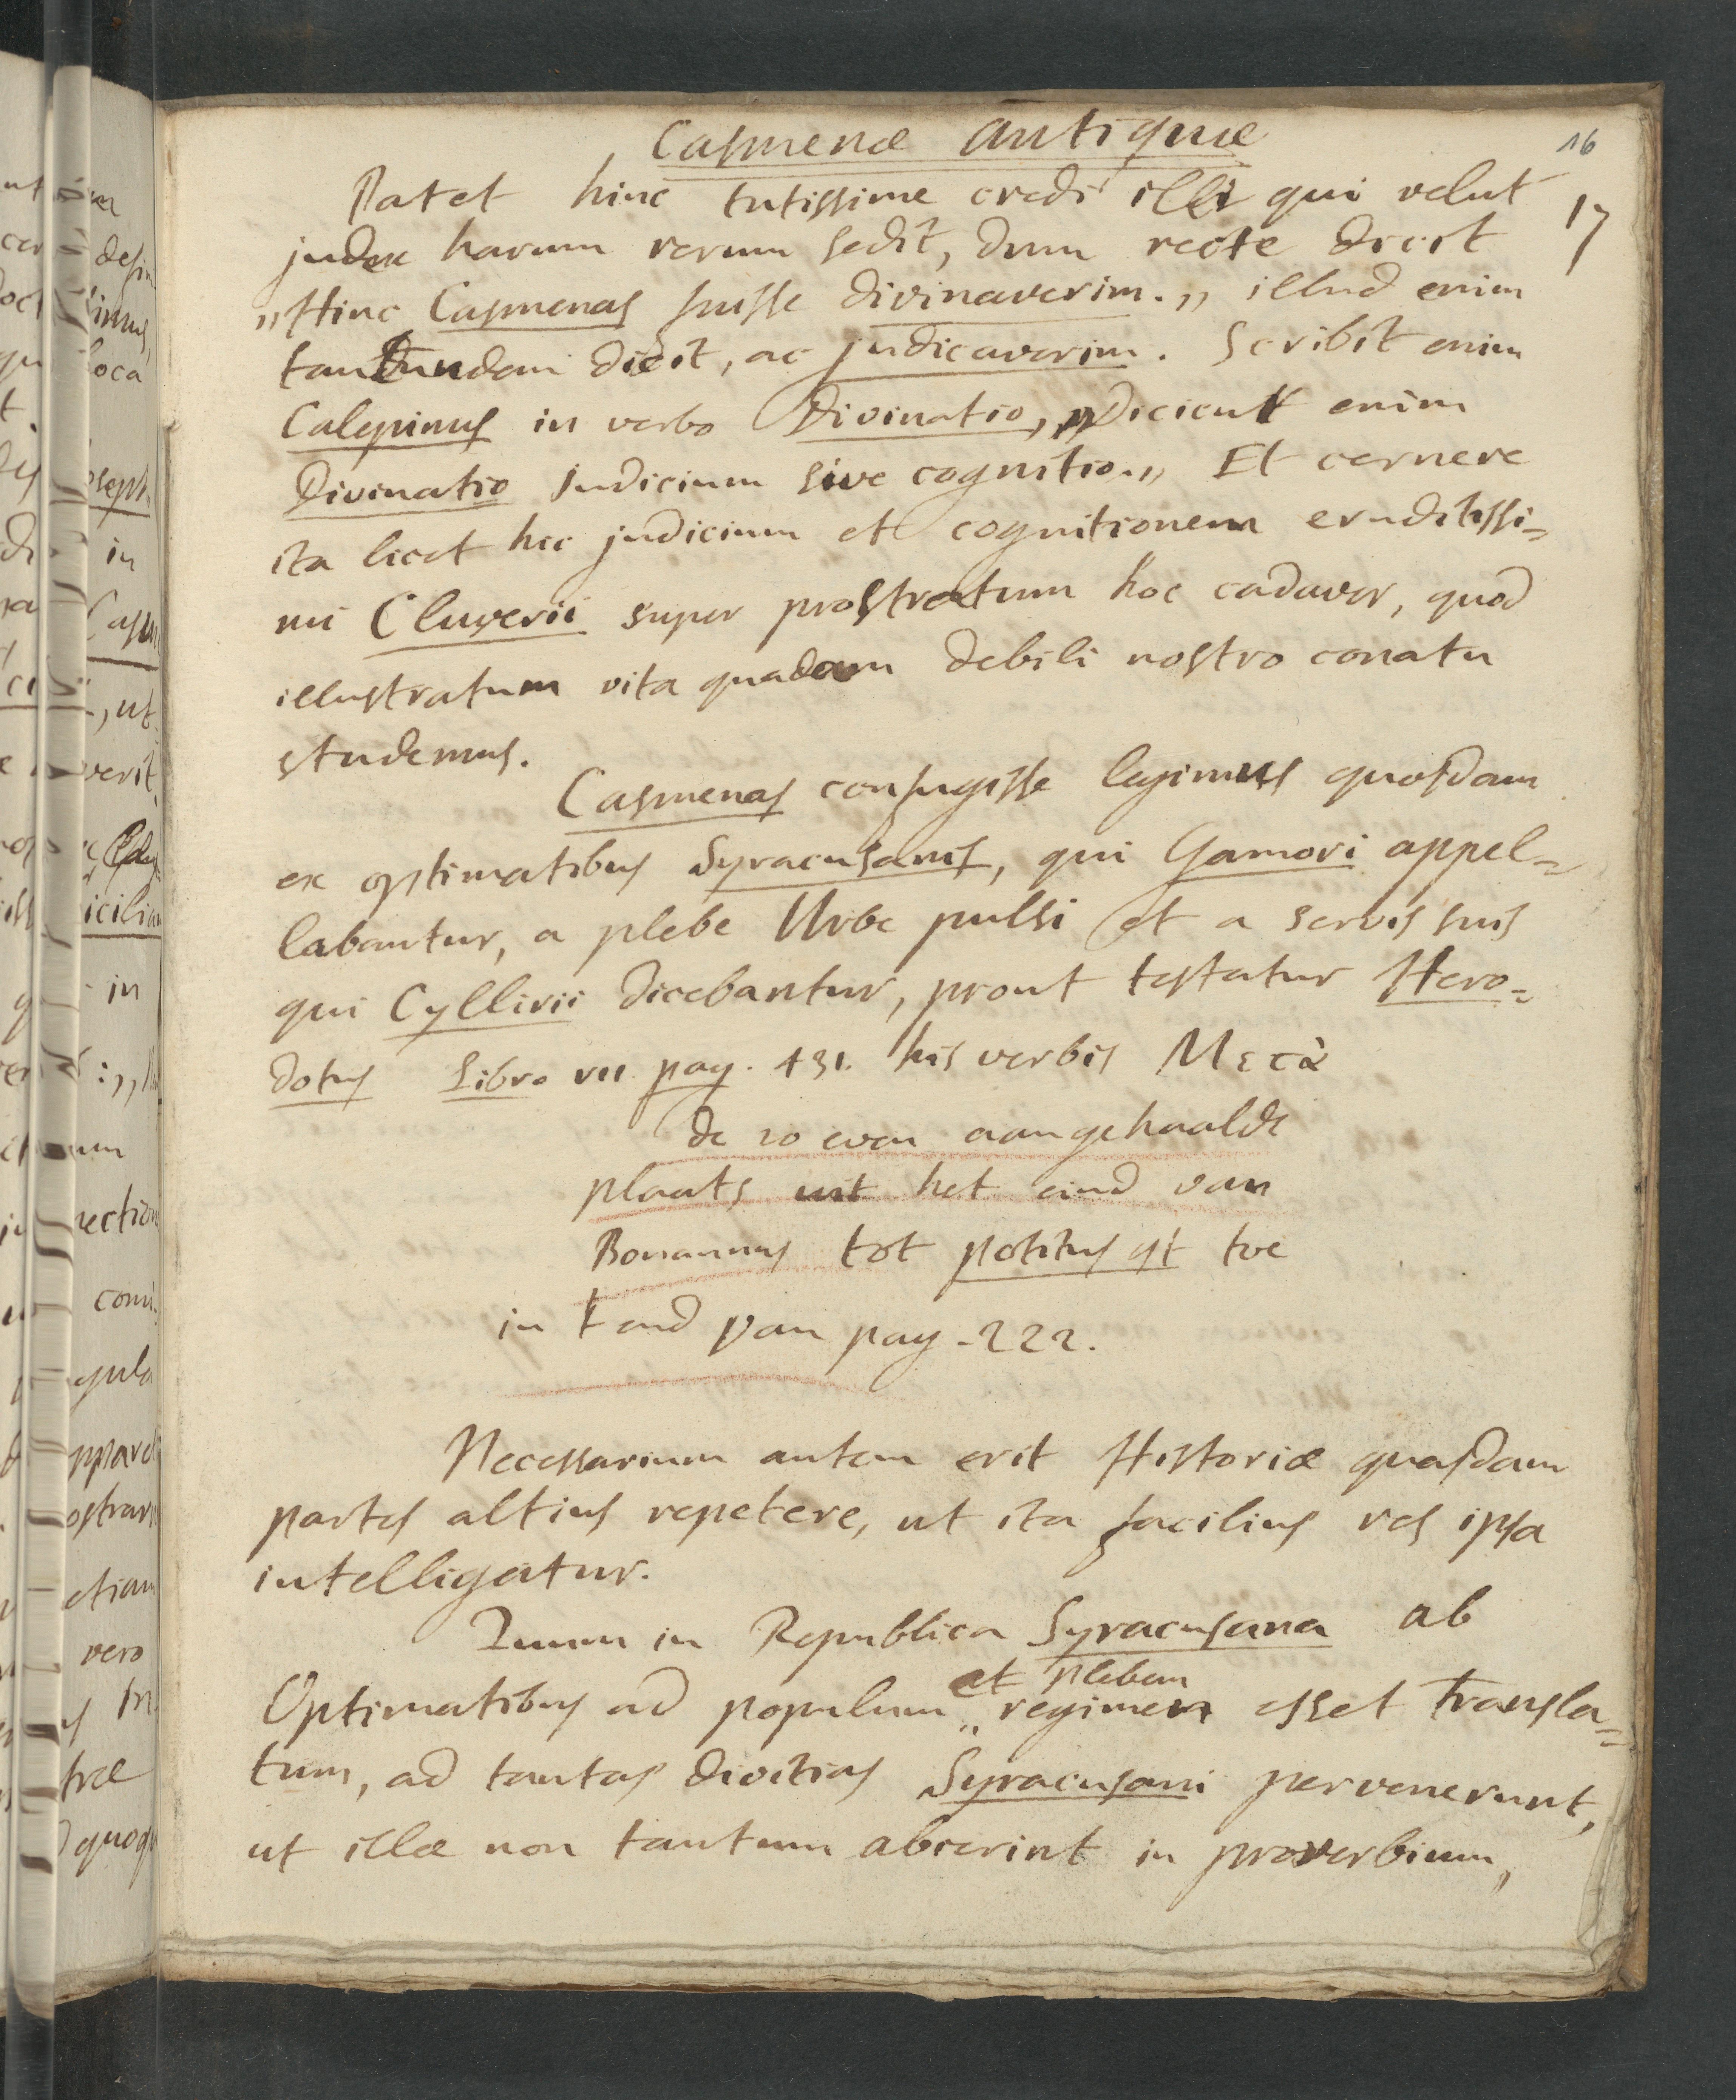 Casmenæ antiquæ
16
Patet hinc tutissime credi illi qui velut
17
judex harum rerum sedit, dum recte dicit
„Hinc Casmenas fuisse divinaverim.„ illud enim
tantundem dicit, ac judicaverim. Scribit enim
Calepinus in verbo Divinatio, „Dicitur enim
Divinatio judicium sive cognitio.„ Et cernere
ita licet hic judicium et cognitionem eruditissi=
mi Cluverii super prostratum hoc cadaver, quod
illustratum vita quadam debili nostro conatu
studemus.
Casmenas confugisse legimus quosdam
ex optimatibus Syracusanis, qui Gamori appel=
labantur, a plebe Urbe pulsi et a servis suis
qui Cyllirii dicebantur, prout testatur Hero=
dotus Libro VII pag. 431. his verbis Μετὰ
de zo even aangehaalde
plaats uit het eind van
Bonannus tot potitus est toe
in t end van pag. 222.
Necessarium autem erit Historiæ quasdam
partes altius repetere, ut ita facilius res ipsa
intelligatur.
Quum in Republica Syracusana ab
et plebem
Optimatibus ad populum „ regimen esset transla=
tum, ad tantas divitias Syracusani pervenerunt,
ut illæ non tantum abierint in proverbium,